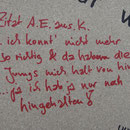 Zitat A.E. aus K.
"ich konnt' nicht mehr
so richtig & da haben die
Jungs mich halt von hin
...ja ich hab ja nur noch
hingehalten"